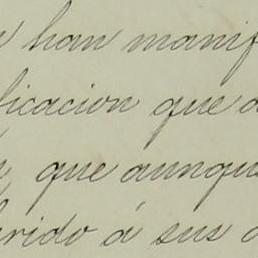 n han manif
ficacion que a
, que aunque
erido á sus